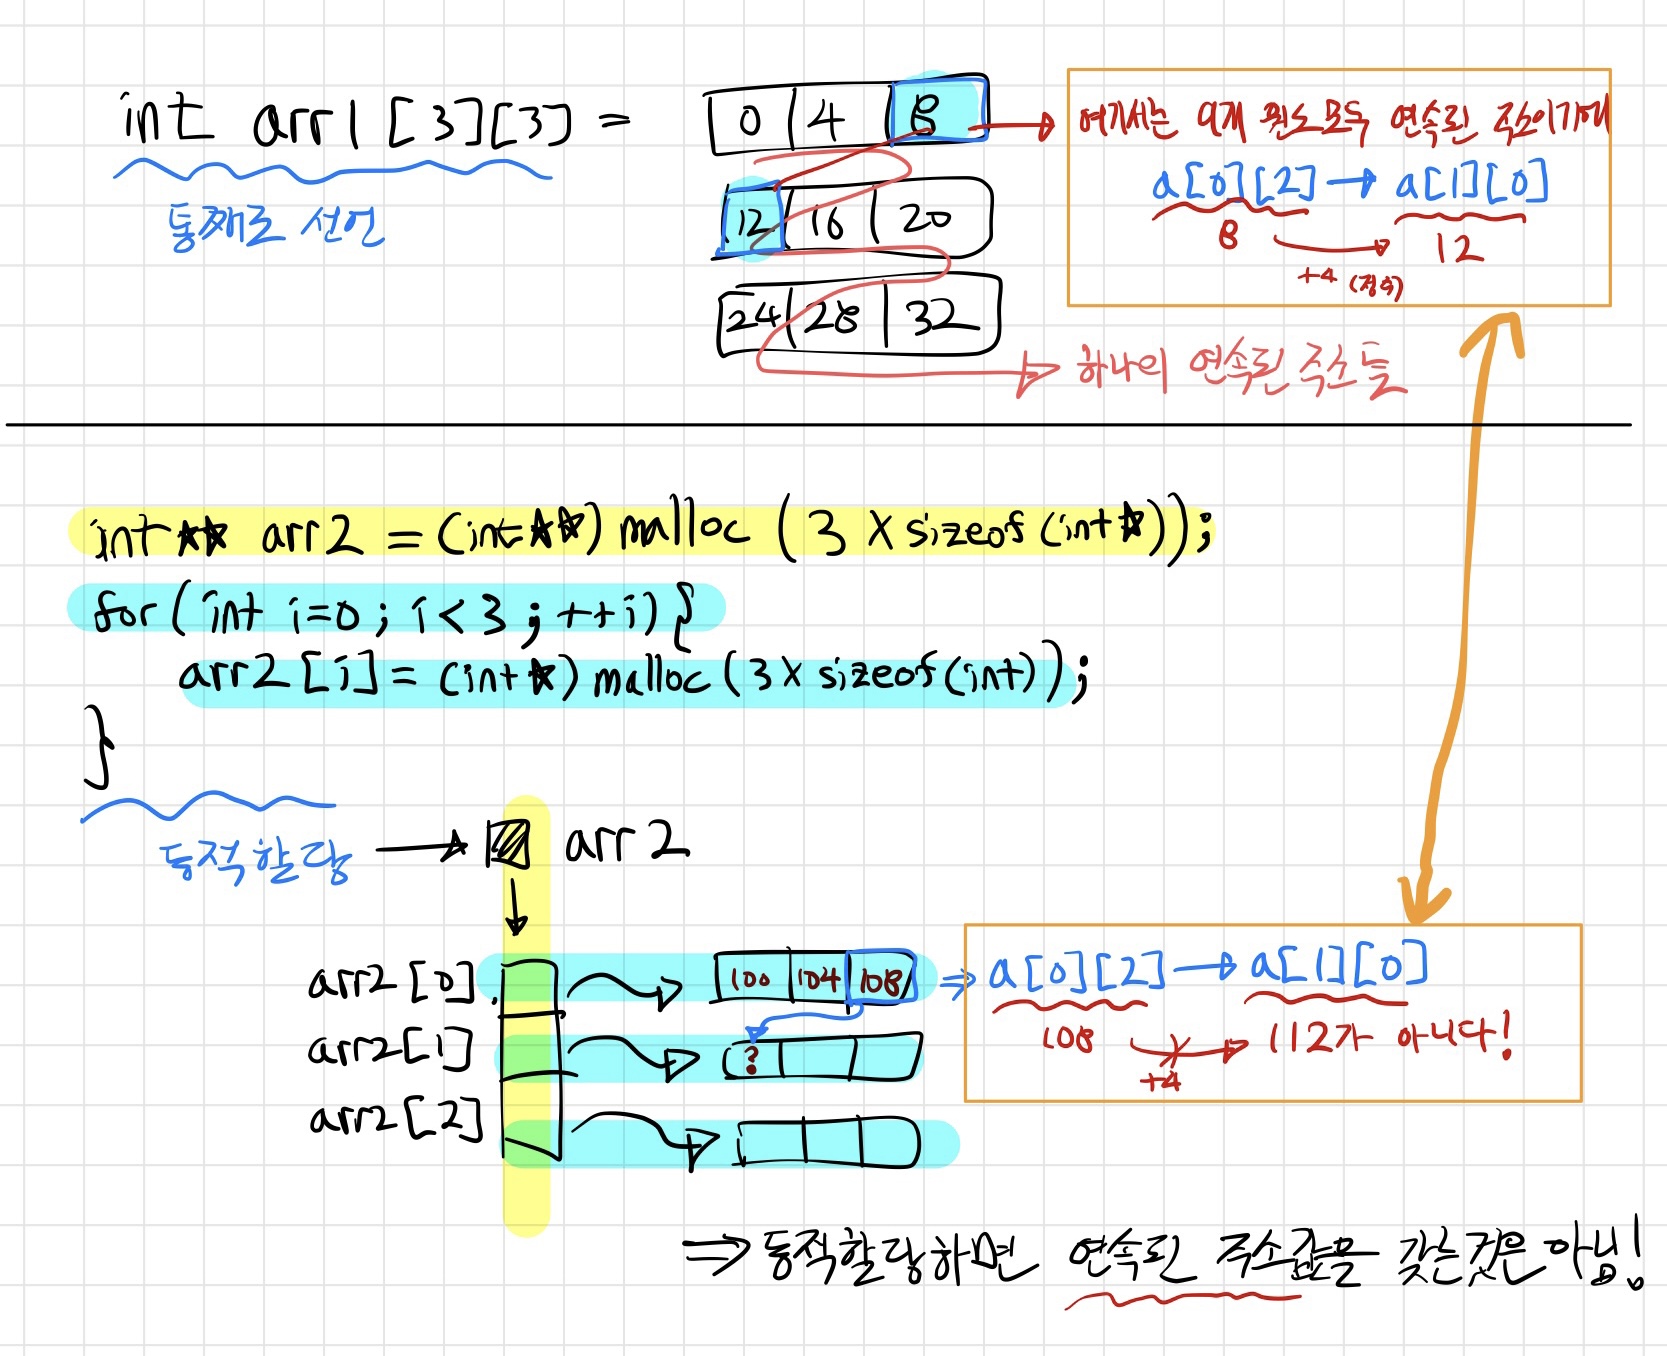 int arr1[3][3] =
통째로 선언
0 4 8
12 16 20
24 28 32
여기서는 9개 원소 모두 연속된 주소이기에
a[0][2] → a[1][0]
8 12
+4 (정수)
하나의 연속된 주소들
int** arr2 = (int**) malloc (3 × sizeof (int*));
for (int i=0; i<3; ++i) {
arr2[i] = (int*) malloc (3 × sizeof (int));
}
동적할당 → arr2
arr2[0] 100 104 108
arr2[1] ?
arr2[2]
⇒ a[0][2] → a[1][0]
108 112가 아니다!
+4
⇒ 동적할당하면 연속된 주소값을 갖는것은 아님!